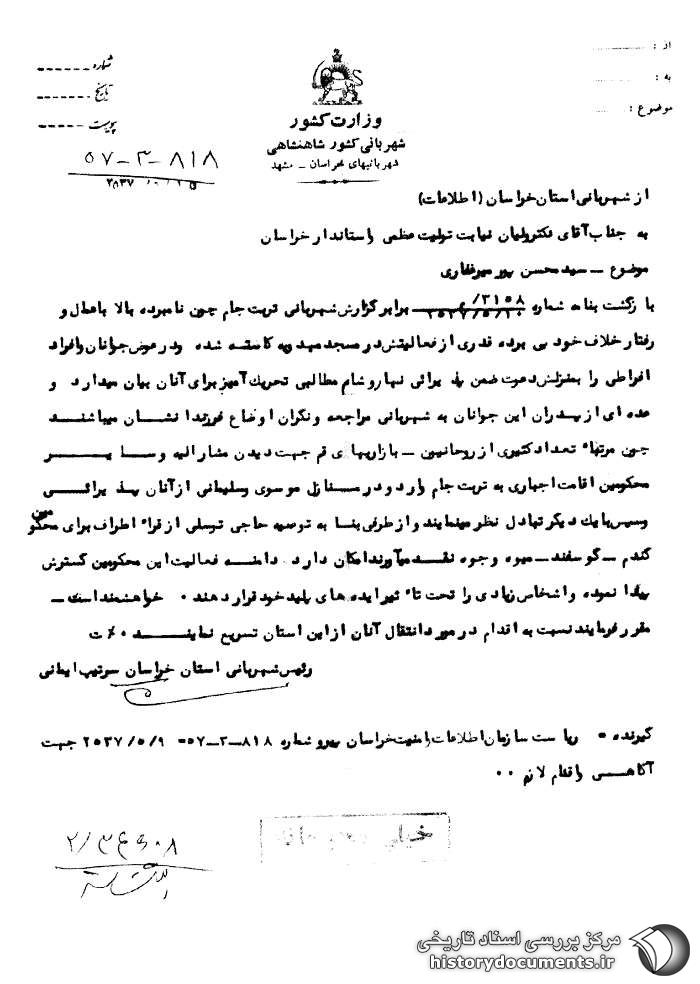 از :
به :
موضوع :
شماره
تاریخ
پیوست
وزارت کشور
شهربانی کشور شاهنشاهی
شهربانیهای خراسان – مشهد
۵۷-۳-۸۱۸
از شهربانی استان خراسان (اطلاعات)
به جناب آقای دکترولیان نیابت تولیت عظمی و استاندار خراسان
موضوع – سید محسن پور میرغفاری
بازگشت بنامه شماره برابر گزارش شهربانی تربت جام چون نامبرده بالا باعمال و
رفتار خلاف خود پی برده قدری از فعالیتش در مسجد مهدویه کاسته شده ودر عوض جوانان وافراد
افراطی را بمنزلش دعوت ضمن پذیرائی نهار و شام مطالبی تحریک آمیز برای آنان بیان میدارد و
عده ای از پدران این جوانان به شهربانی مراجعه و نگران اوضاع فرزندانشان میباشند
چون مرتباً تعداد کثیری از روحانیون – بازاریهای قم جهت دیدن مشارالیه و سایر
محکومین اقامت اجباری به تربت جام وارد و در منازل موسوی وسلیمانی از آنان پذیرائی
وسپس بایک دیگر تبادل نظر مینمایند و از طرفی بنا به توصیه حاجی توسلی از قراء اطراف برای محکومین
گندم – گوسفند – میوه وجوه نقد میآورند امکان دارد دامنه فعالیت این محکومین گسترش
پیدا نموده و اشخاص زیادی را تحت تاثیر ایده های پلید خود قرار دهند . خواهشمند است –
مقرر فرمایند نسبت به اقدام در مورد انتقال آنان از این استان تسریع نمایند
رئیس شهربانی استان خراسان سرتیپ ایمانی
گیرنده = ریاست سازمان اطلاعات وامنیت خراسان پیرو شماره ۸۱۸-۳-۵۷ - ۲۵۳۷/۵/۹ جهت
آگاهی و اقدام لازم ..
خیلی محرمانه
مرکز بررسی اسناد تاریخی
historydocuments.ir